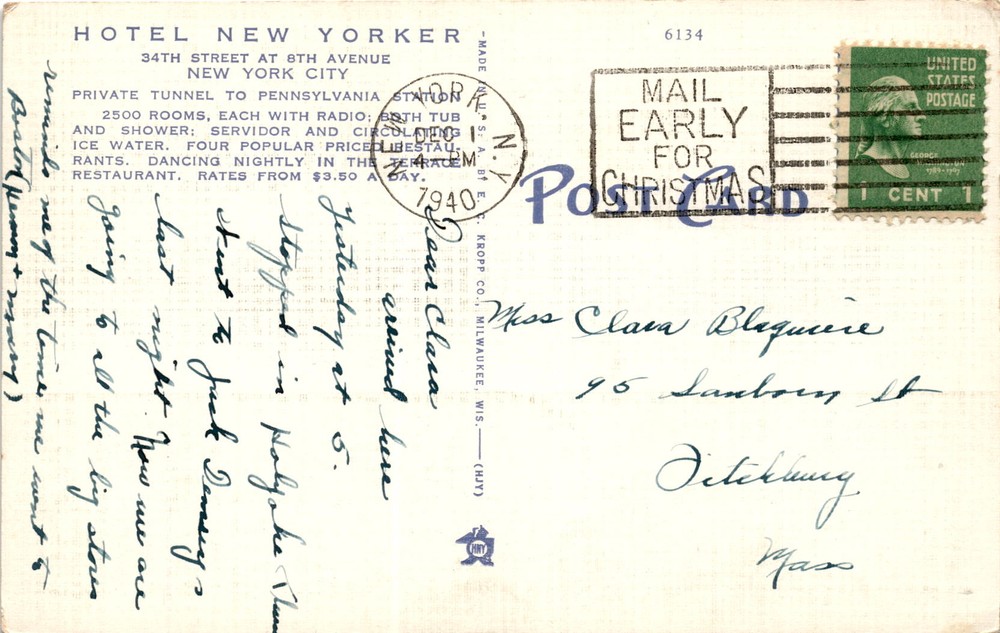 HOTEL NEW YORKER
34TH STREET AT 8TH AVENUE
NEW YORK CITY
PRIVATE TUNNEL TO PENNSYLVANIA STATION
2500 ROOMS, EACH WITH RADIO; BATH TUB
AND SHOWER; SERVIDOR AND CIRCULATING
ICE WATER. FOUR POPULAR PRICED RESTAU-
RANTS. DANCING NIGHTLY IN THE TERRACE
RESTAURANT. RATES FROM $3.50 A DAY.
Dear Clara
arrived here
Yesterday at 5.
Stopped in Holyoke
Went to Jack Dempsey's
last night. Now we are
going to all the big stores
reminds me of the time we went to
Boston,
-MADE IN U. S. A. BY E. C. KROPP CO., MILWAUKEE, WIS.-(HJY)
HNY
6134
POST CARD
NEW YORK, N.Y.
DEC 1
4-PM
1940
MAIL
EARLY
FOR
CHRISTMAS
UNITED
STATES
POSTAGE
GEORGE
1 CENT 1
Miss Clara Blaquiere
95 Sanborn St
Fitchburg
Mass